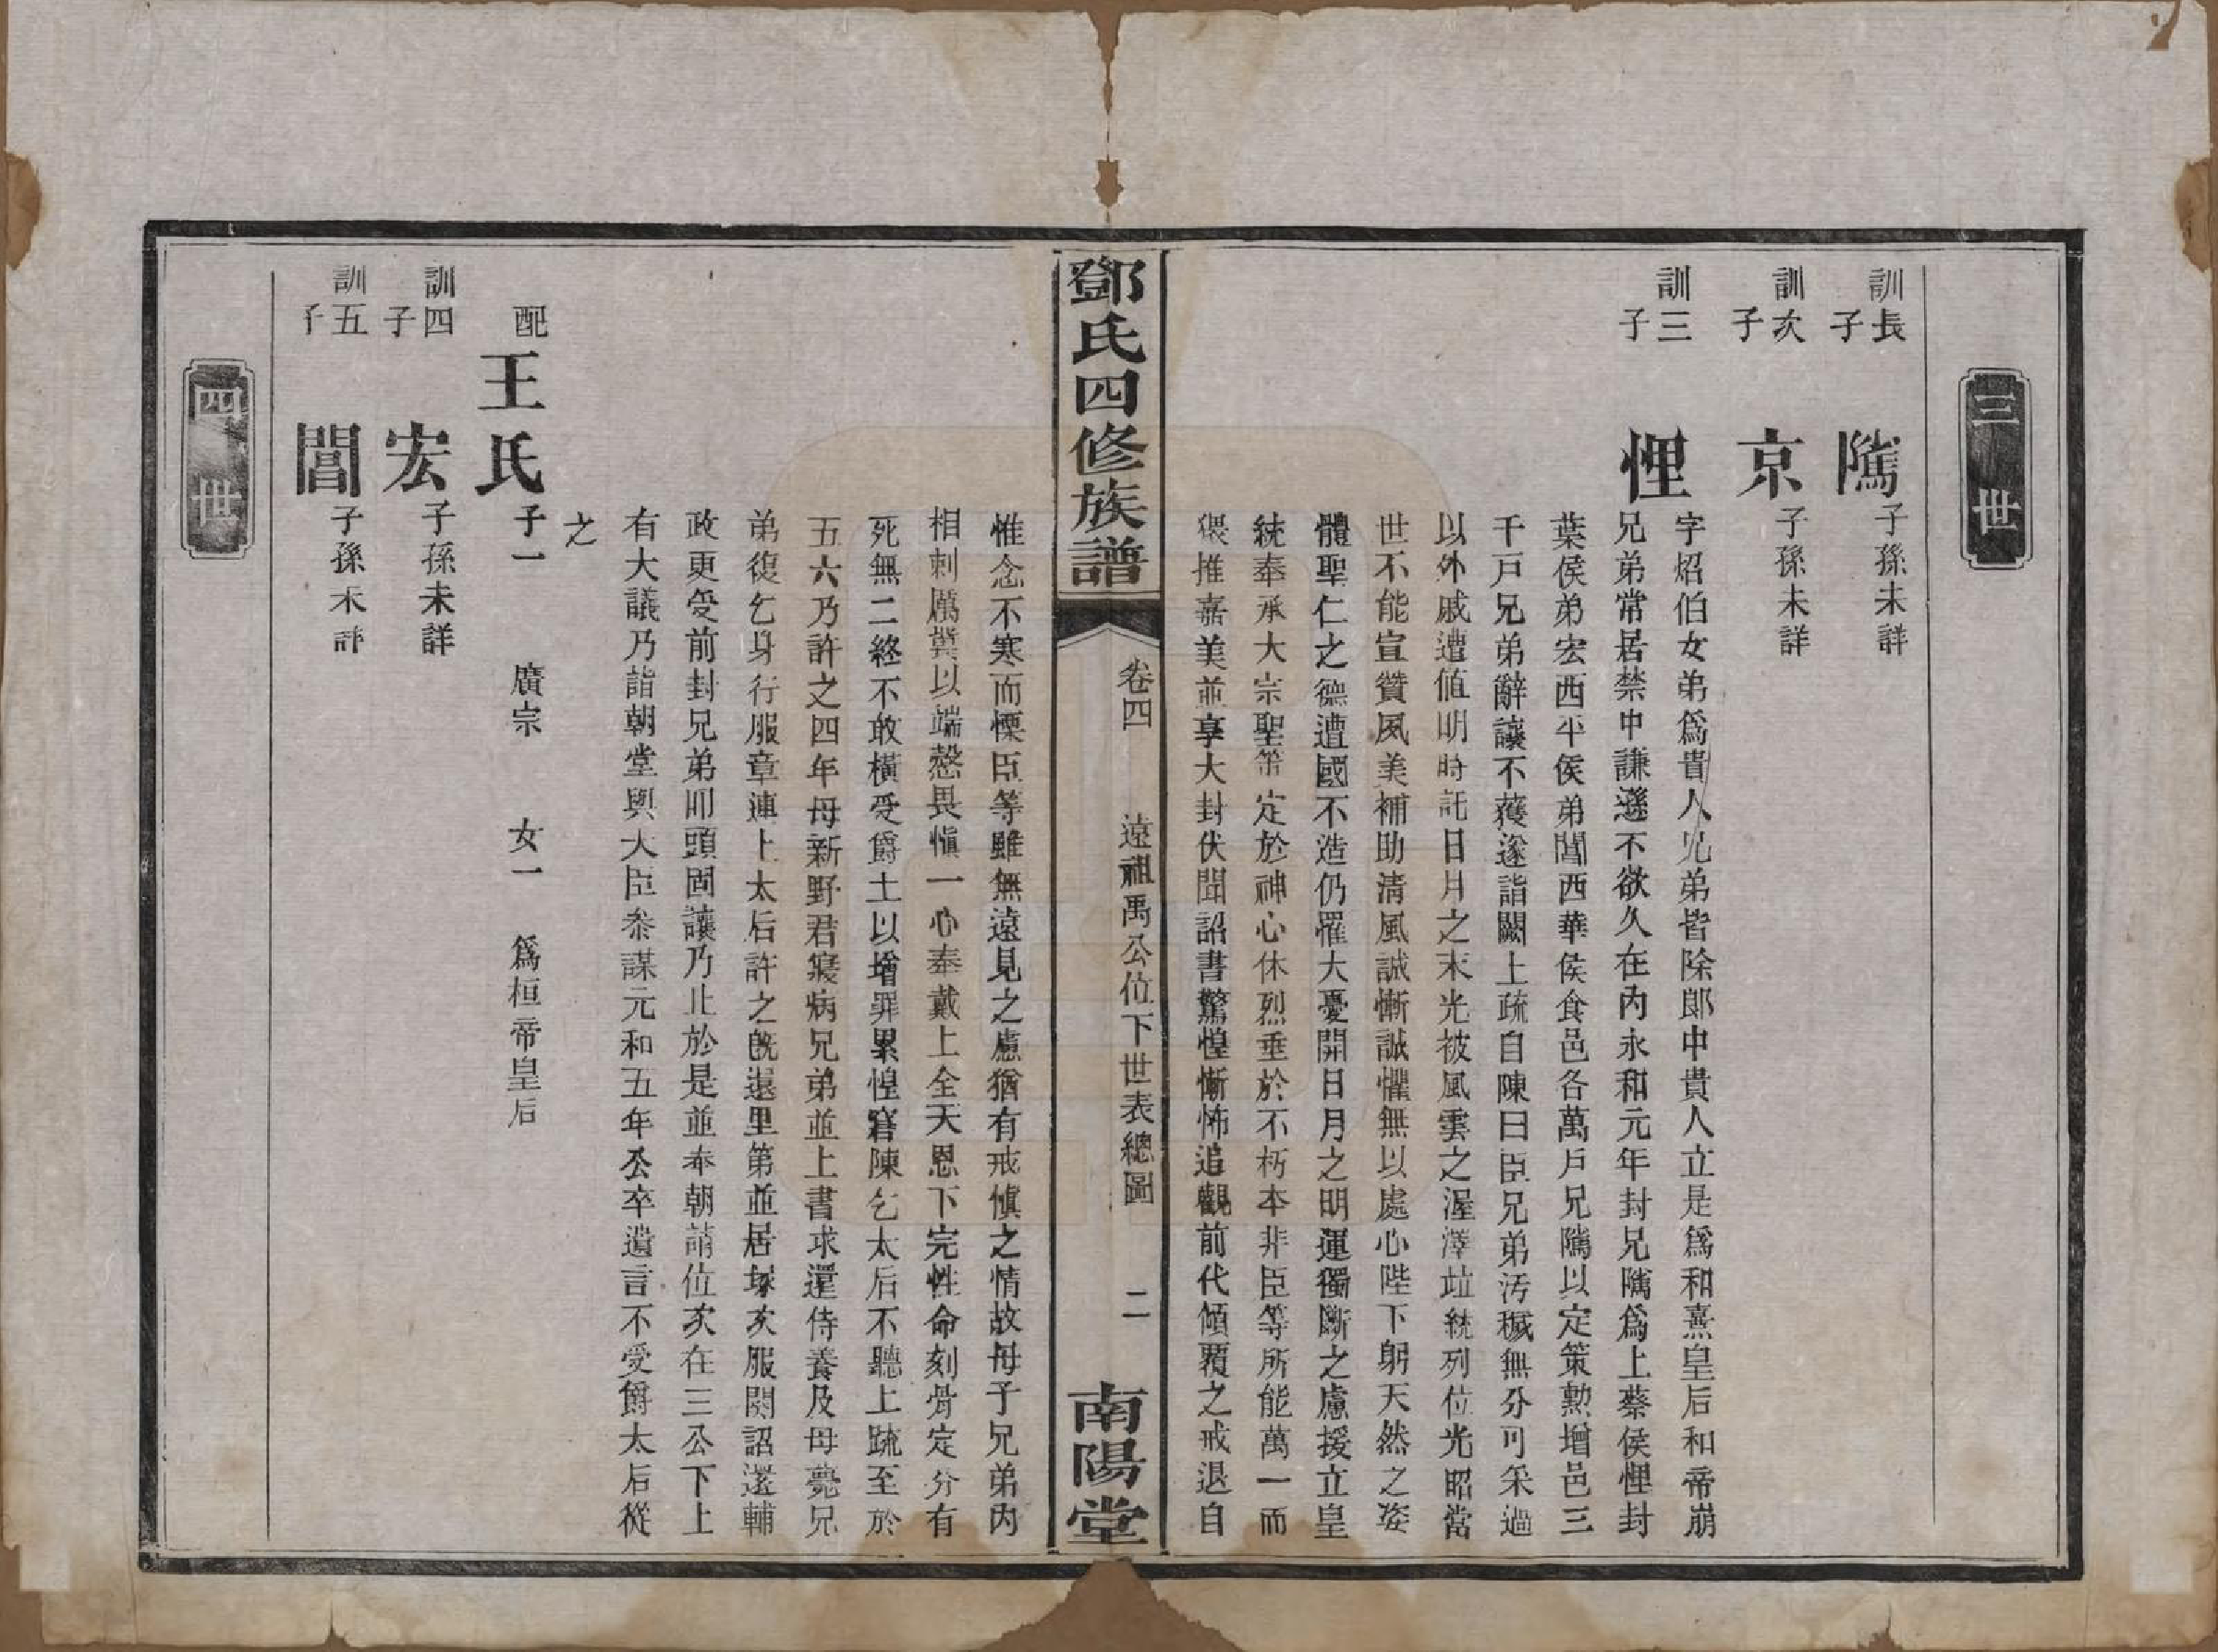 三世
訓長子 隲 子孫未詳
訓次子 京 子孫未詳
訓三子 悝 字炤伯女弟爲貴人兄弟皆除郞中貴人立是爲和熹皇后和帝崩
兄弟常居禁中謙遜不欲久在內永和元年封兄隲爲上蔡侯悝封
葉侯弟宏西平侯弟閶西華侯食邑各萬戶兄隲以定策勲增邑三
千戸兄弟辭讓不獲遂詣闕上疏自陳曰臣兄弟汚穢無分可采過
以外戚遭値明時託日月之末光被風雲之渥澤竝統列位光昭當
世不能宣贊風美補助淸風誠慚誠懼無以處心陛下躬天然之姿
體聖仁之德遭國不造仍罹大憂開日月之明運獨斷之慮援立皇
統奉承大宗聖策定於神心休烈垂於不朽本非臣等所能萬一而
猥推嘉美並享大封伏聞詔書驚惶慚怖追觀前代傾覆之戒退自
鄧氏四修族譜 卷四 遠祖禹公位下世表總圖 二 南陽堂
惟念不寒而慄臣等雖無遠見之慮猶有戒愼之情故母子兄弟內
相刺厲冀以端慤畏愼一心奉戴上全天恩下完性命刻骨定分有
死無二終不敢橫受爵土以增罪累惶窘陳乞太后不聽上疏至於
五六乃許之四年母新野君寢病兄弟並上書求還侍養及母薨兄
弟復乞身行服章連上太后許之旣還里第並居塚次服闋詔還輔
政更受前封兄弟叩頭固讓乃止於是並奉朝請位次在三公下上
有大議乃詣朝堂與大臣叅謀元和五年公卒遺言不受爵太后從
之
配 王氏 子一 廣宗 女一 爲桓帝皇后
訓四子 宏 子孫未詳
訓五子 閶 子孫未詳
四世